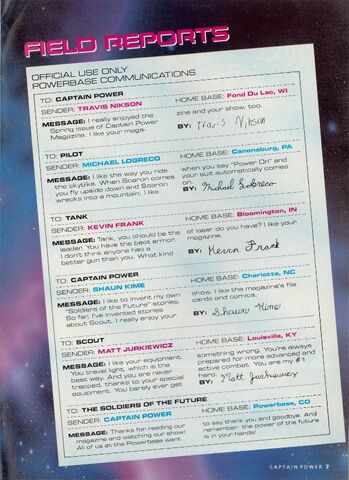 FIELD REPORTS
OFFICIAL USE ONLY
POWERBASE COMMUNICATIONS
TO: CAPTAIN POWER
SENDER: TRAVIS NIKSON
HOME BASE: Fond Du Lac, WI
MESSAGE: I really enjoyed the
Spring issue of Captain Power
Magazine. I like your maga-
zine and your show, too.
BY: Travis Nikson
TO: PILOT
SENDER: MICHAEL LOGRECO
HOME BASE: Canonsburg, PA
MESSAGE: I like the way you ride
the skybike. When Soaron comes
you fly upside down and Soaron
wrecks into a mountain. I like
when you say "Power On" and
your suit automatically comes
on.
BY: Michael LoGreco
TO: TANK
SENDER: KEVIN FRANK
HOME BASE: Bloomington, IN
MESSAGE: Tank, you should be the
leader. You have the best armor.
I don't think anyone has a
better gun than you. What kind
of laser do you have? I like your
magazine.
BY: Kevin Frank
TO: CAPTAIN POWER
SENDER: SHAUN KIME
HOME BASE: Charlotte, NC
MESSAGE: I like to invent my own
"Soldiers of the Future" stories.
So far, I've invented stories
about Scout. I really enjoy your
show. I like the magazine's file
cards and comics.
BY: Shaun Kime
TO: SCOUT
SENDER: MATT JURKIEWICZ
HOME BASE: Louisville, KY
MESSAGE: I like your equipment.
You travel light, which is the
best way. And you are never
trapped, thanks to your special
equipment. You barely ever get
something wrong. You're always
prepared for more advanced and
active combat. You are my #1
hero.
BY: Matt Jurkiewicz
TO: THE SOLDIERS OF THE FUTURE
SENDER: CAPTAIN POWER
HOME BASE: Powerbase, CO
MESSAGE: Thanks for reading our
magazine and watching our show!
All of us at the Powerbase want
to say thank you and goodbye. And
remember: the power of the future
is in your hands!
CAPTAIN POWER 7